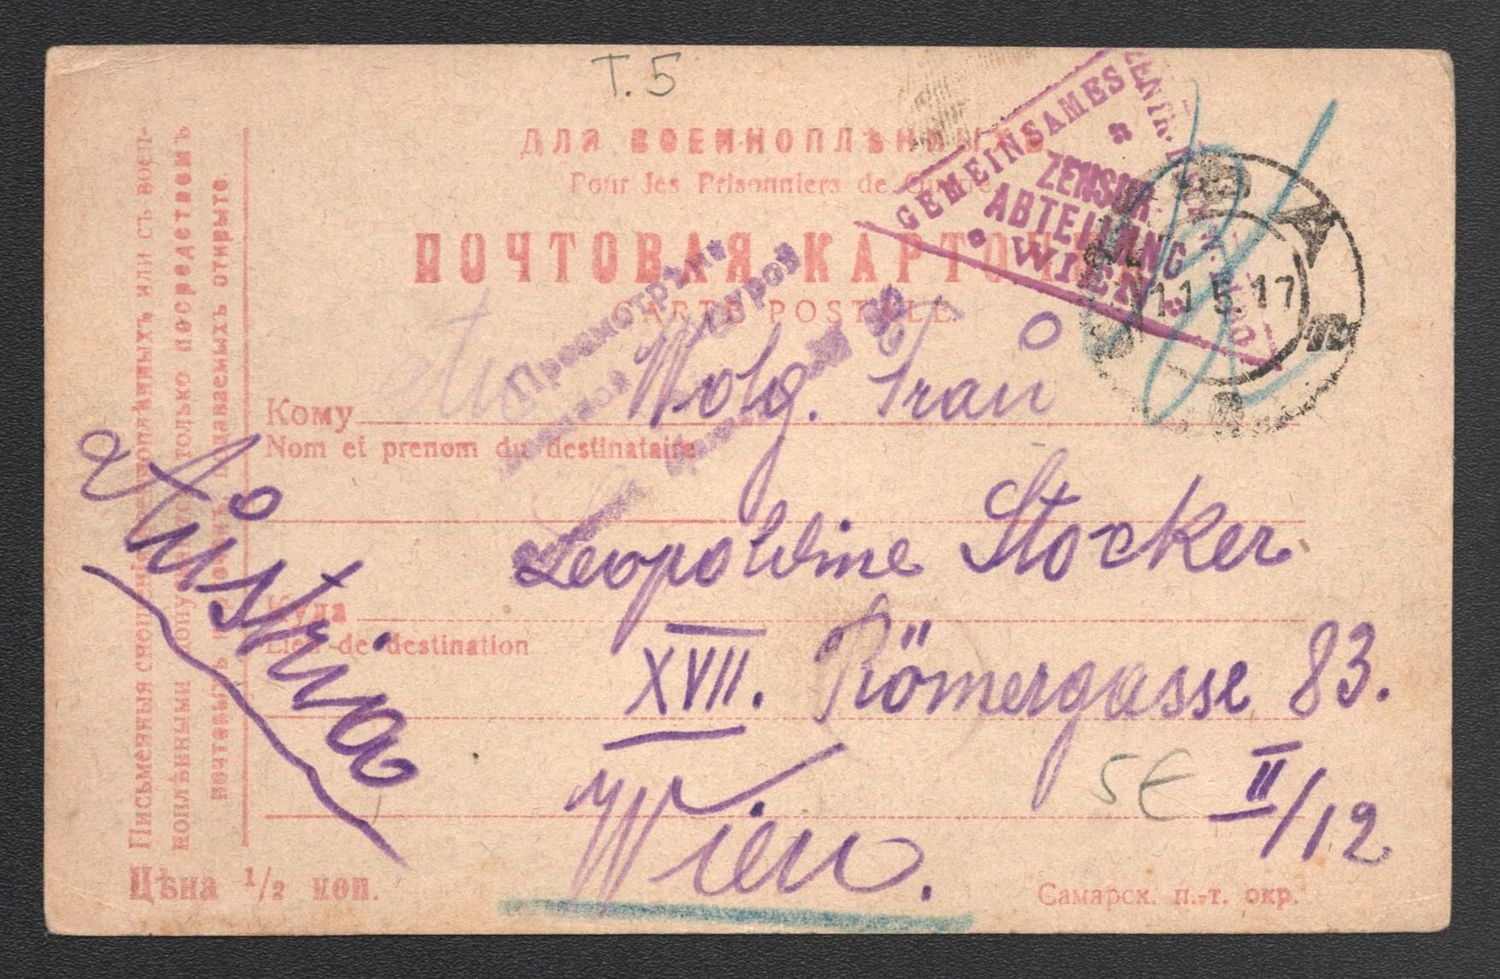 T. 5
ДЛЯ ВОЕННОПЛѢННЫХЪ
Pour les Prisonniers de Guerre
ПОЧТОВАЯ КАРТОЧКА
CARTE POSTALE
GEMEINSAMES ZENTR.
ZENSUR
ABTEILUNG
WIEN
11 5 17
Просмотрѣнъ
Кому
Nom et prenom du destinataire
An Wolg. Frau
Leopoldine Stocker
Куда
Lieu de destination
XVII. Römergasse 83.
II/12
5€
Wien.
Austria
Письменныя сношенія военноплѣнныхъ или съ воен-
ноплѣнными допускаются только посредствомъ
почтовыхъ карточекъ подаваемыхъ открыто.
Цѣна 1/2 коп.
Самарск. п.-т. окр.